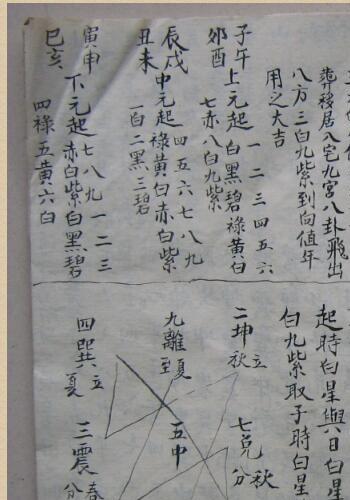 葬移居八宅九宮八卦飛出
八方三白九紫到向值年
用之大吉
子午 上元起 一白 二黑 三碧 四祿 五黃 六白
卯酉 七赤八白九紫
辰戌 中元起 四祿 五黃 六白 七赤 八白 九紫
丑未 一白二黑三碧
寅申 下元起 七赤 八白 九紫 一白 二黑 三碧
巳亥 四祿五黃六白
起時白星與日白星
白九紫取子時白星
二坤立秋 七兌秋分
九離夏至 五中
四巽立夏 三震春分